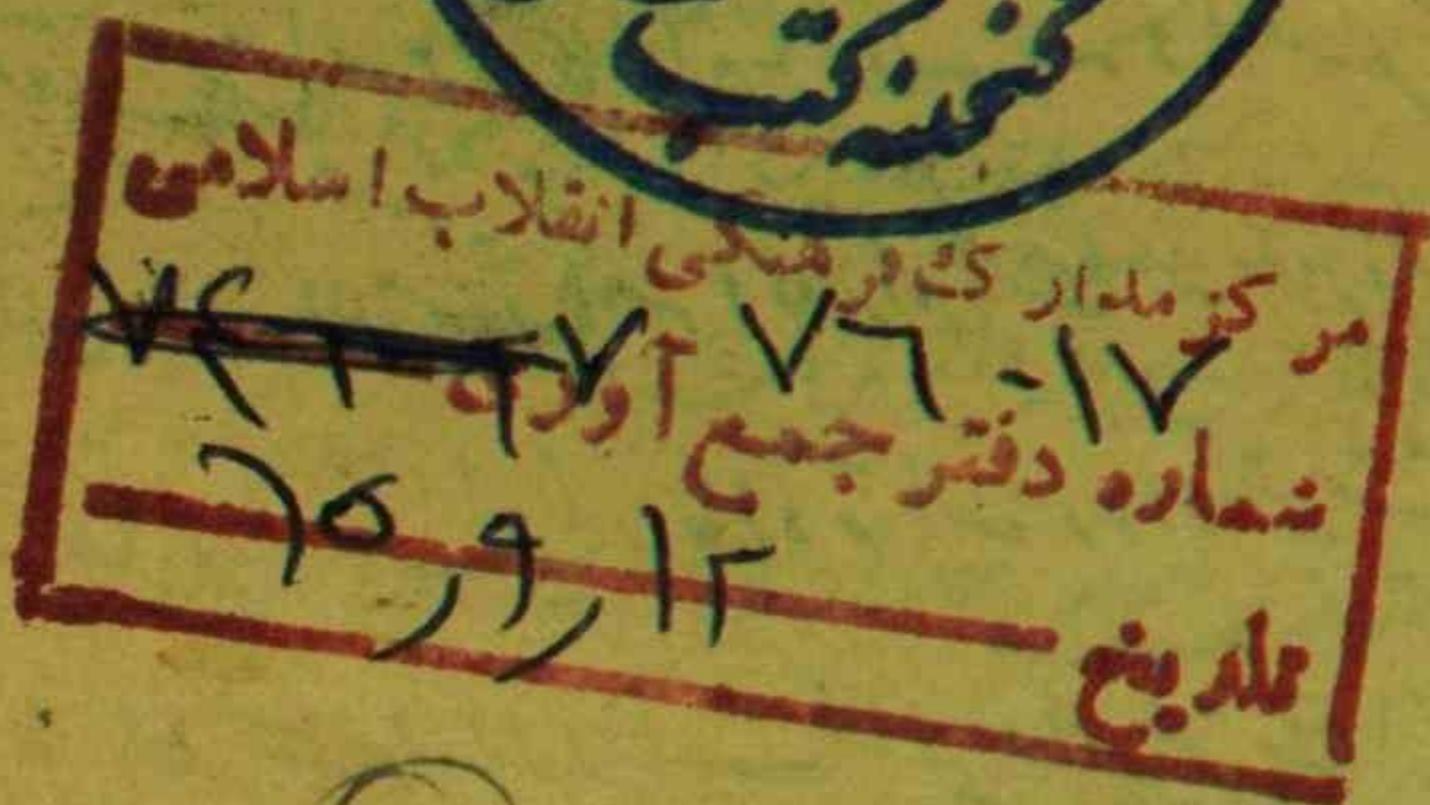 گنجینه کتب
مرکز مدارک فرهنگی انقلاب اسلامی
۱۷-۷۶۷
شماره دفتر جمع آوری
تاریخ ۱۲ر۹ر۶۵